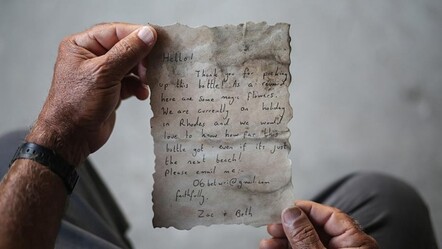 Hello!
Thank you for picking
up this bottle! As a reward
here are some magic flowers.
We are currently on holiday
in Rhodes and we would
love to know how far this
bottle got even if its just
the next beach!
Please email me:-
faithfully,
Zac + Beth